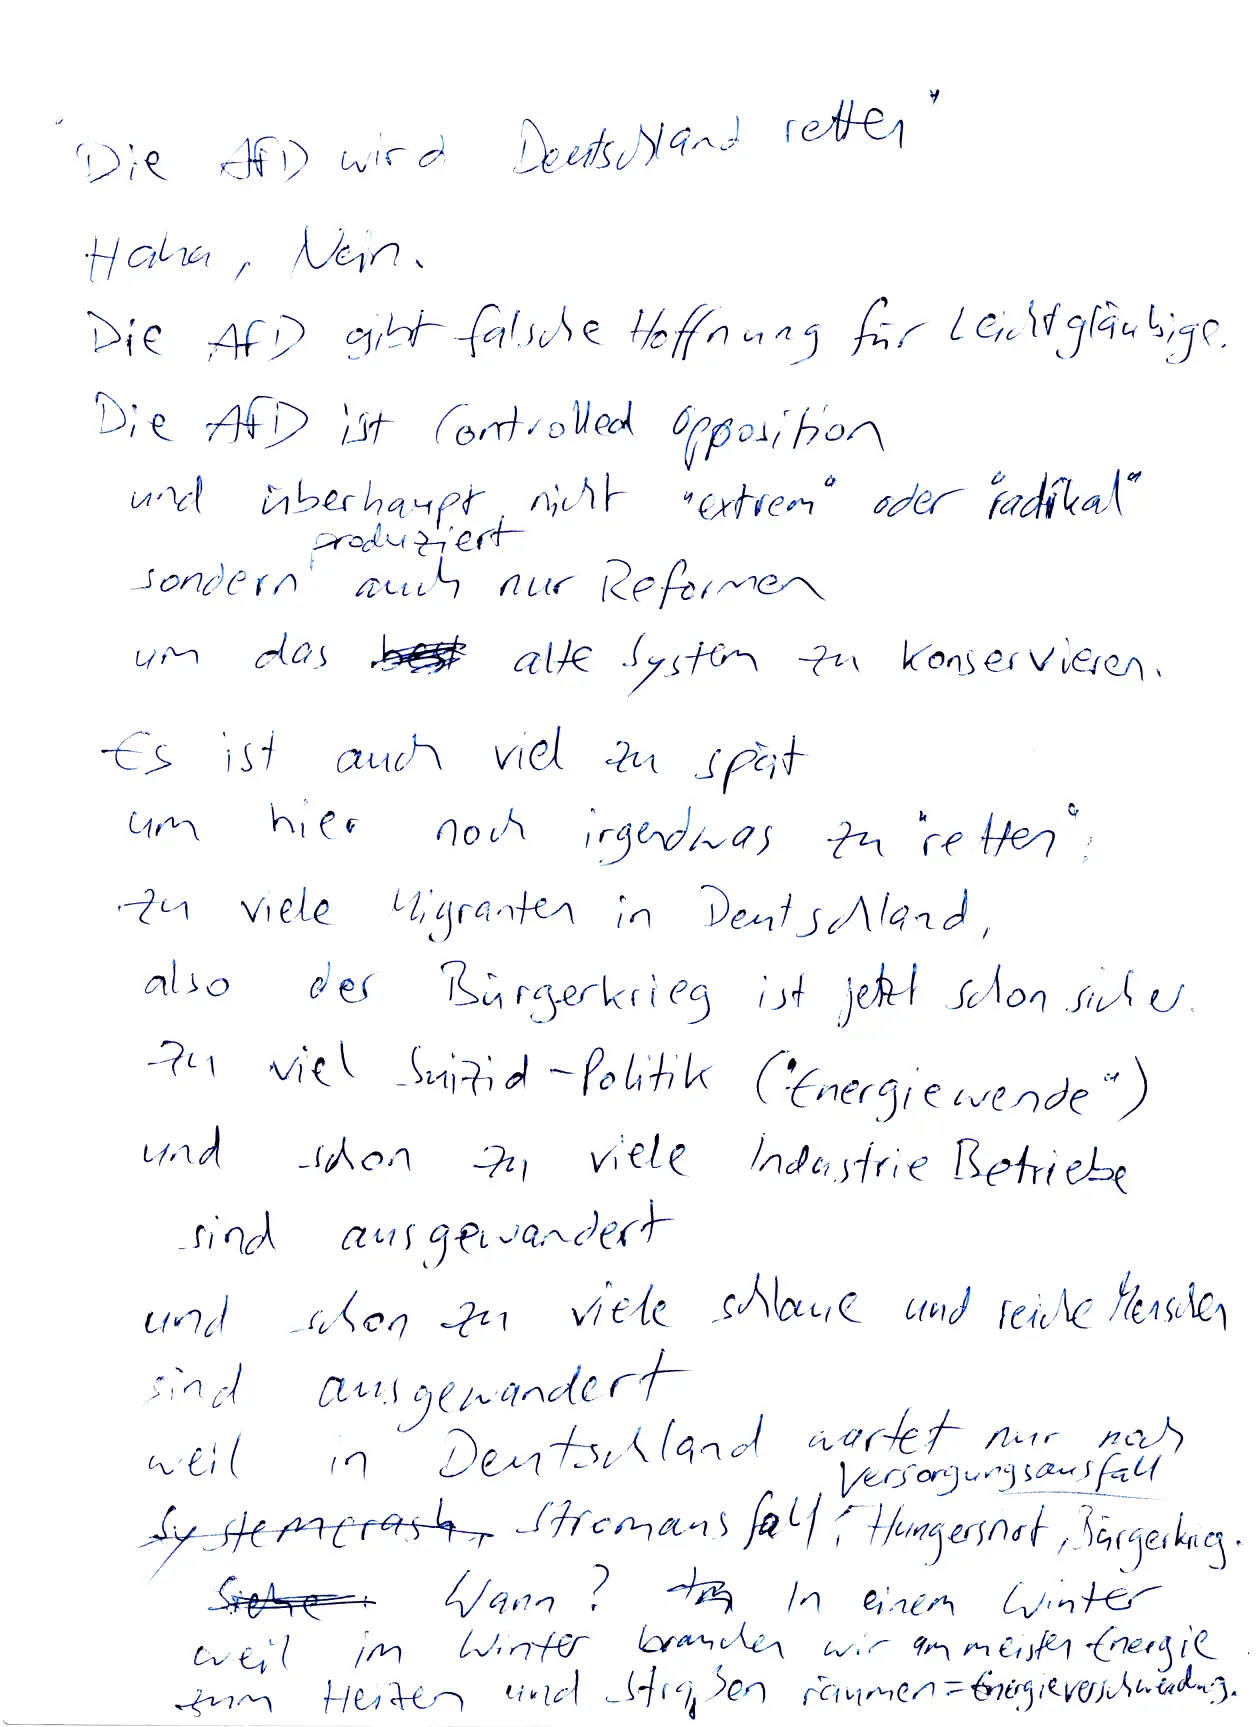 "Die AfD wird Deutschland retten"
Haha, Nein.
Die AfD gibt falsche Hoffnung für Leichtgläubige.
Die AfD ist Controlled Opposition
und überhaupt nicht "extrem" oder "radikal"
produziert
sondern auch nur Reformen
um das best alte System zu konservieren.
Es ist auch viel zu spät
um hier noch irgendwas zu "retten":
zu viele Migranten in Deutschland,
also der Bürgerkrieg ist jetzt schon sicher.
zu viel Suizid-Politik ("Energiewende")
und schon zu viele Industrie Betriebe
sind ausgewandert
und schon zu viele schlaue und reiche Menschen
sind ausgewandert
weil in Deutschland wartet nur noch
Versorgungsausfall
Systemcrash, Stromausfall, Hungersnot, Bürgerkrieg.
Siehe Wann? In einem Winter
weil im Winter brauchen wir am meisten Energie
zum Heizen und Straßen räumen = Energieverschwendung.